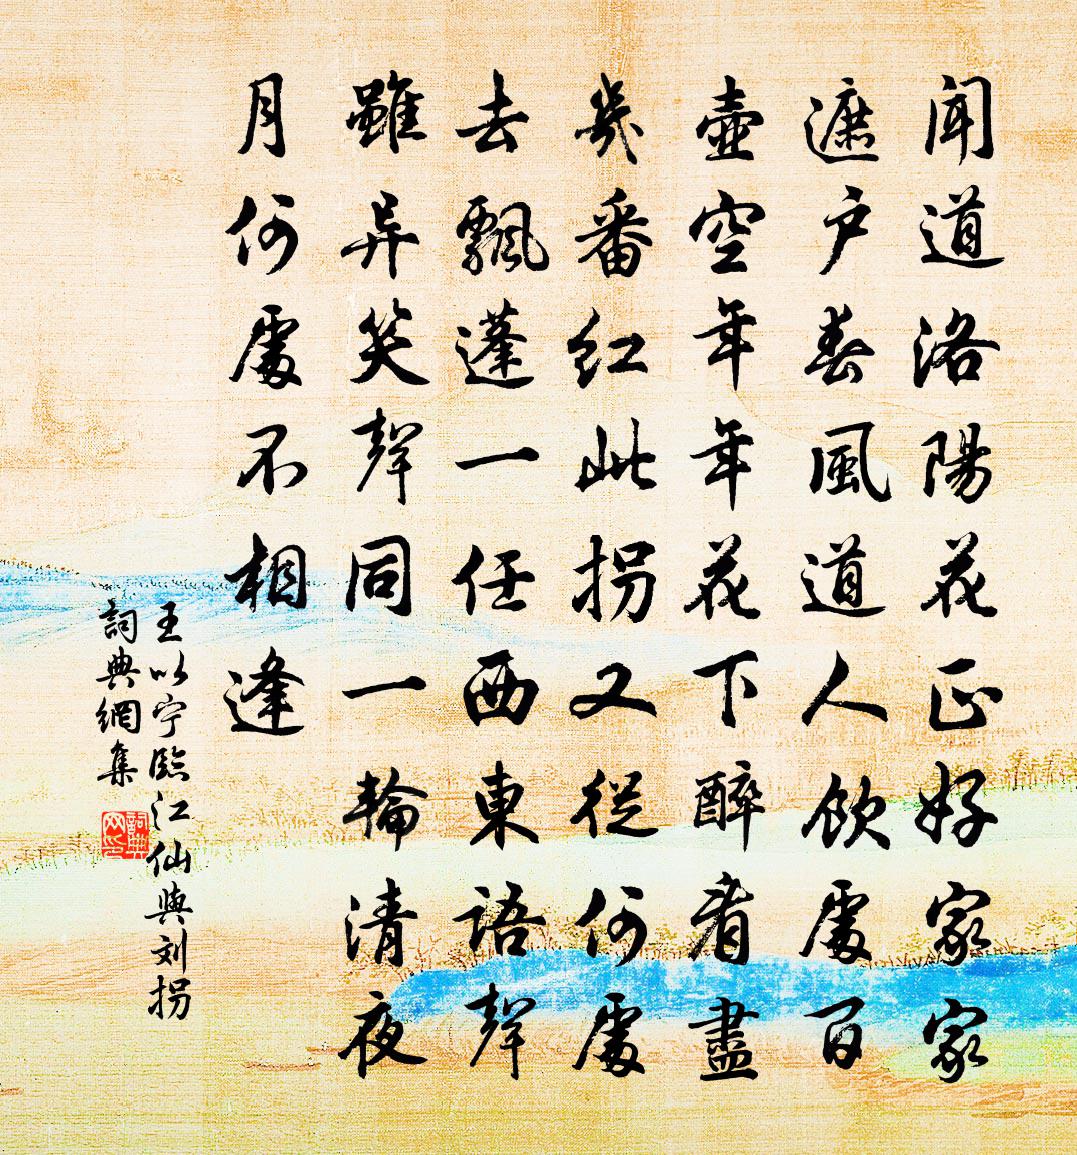 聞道洛陽花正好家家
遮户春風道人飲處百
壺空年年花下醉看盡
幾番紅此拐又從何處
去飄蓬一任西東語聲
雖异笑聲同一輪清夜
月何處不相逢
王以宁臨江仙與刘拐
詞典網集
詞典网